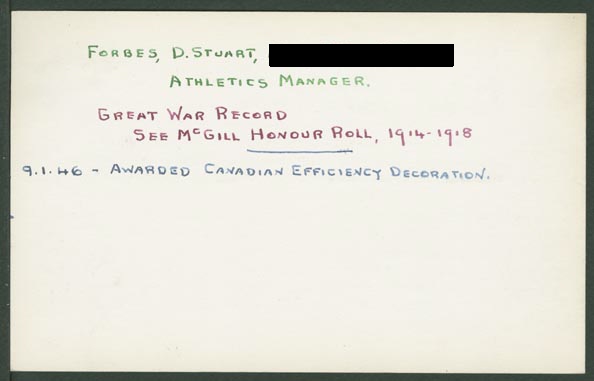 FORBES, D. STUART,
ATHLETICS MANAGER.
GREAT WAR RECORD
SEE McGILL HONOUR ROLL, 1914-1918
9.1.46 - AWARDED CANADIAN EFFICIENCY DECORATION.